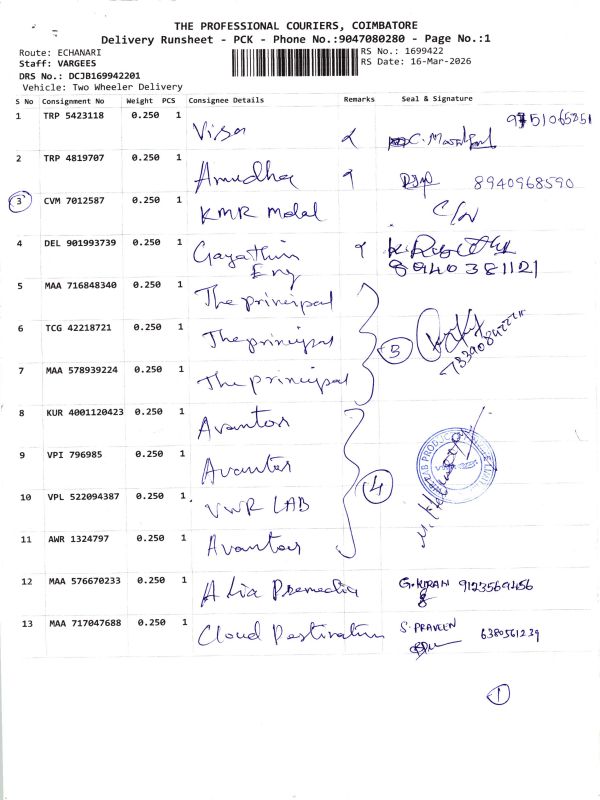 THE PROFESSIONAL COURIERS, COIMBATORE
Delivery Runsheet - PCK - Phone No.:9047080280 - Page No.:1
Route: ECHANARI
Staff: VARGEES
DRS No.: DCJB169942201
Vehicle: Two Wheeler Delivery
RS No.: 1699422
RS Date: 16-Mar-2026
S No Consignment No Weight PCS Consignee Details Remarks Seal & Signature
1 TRP 5423118 0.250 1 Visa
2 TRP 4819707 0.250 1 Anudha 8940968590
3 CVM 7012587 0.250 1 KMR Motal
4 DEL 901993739 0.250 1 Gayathiri Eng 8940381121
5 MAA 716848340 0.250 1 The principal
6 TCG 42218721 0.250 1 The principal
7 MAA 578939224 0.250 1 The principal
3
8 KUR 4001120423 0.250 1 Avantor
9 VPI 796985 0.250 1 Avantor
10 VPL 522094387 0.250 1 VWR LAB
11 AWR 1324797 0.250 1 Avantor
4
12 MAA 576670233 0.250 1 G.KIRAN 9123569456
13 MAA 717047688 0.250 1 Cloud Destination S. PRAVEEN 6380561239
1